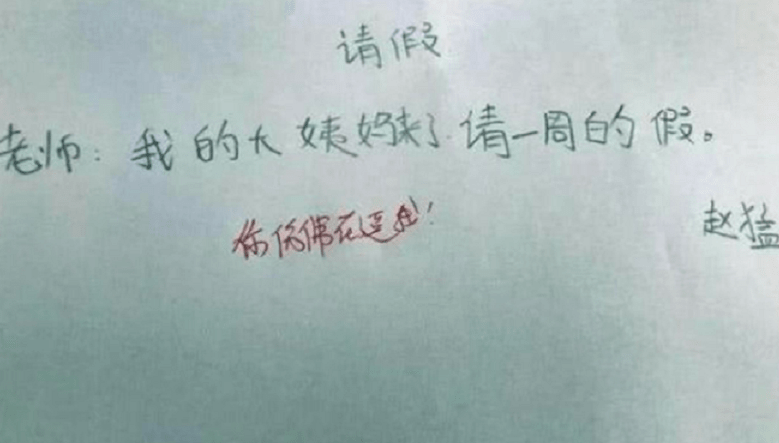 请假
老师：我的大姨妈来了.请一周的假。
你仿佛在逗我！
赵猛